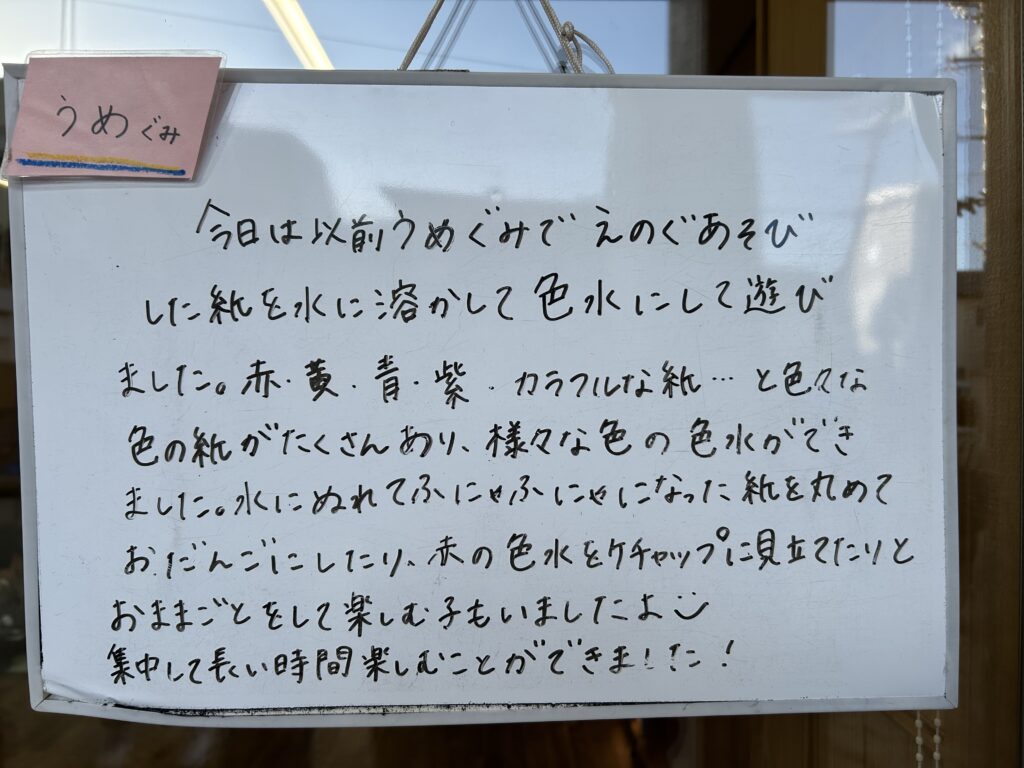 うめぐみ
今日は以前うめぐみで えのぐあそび
した紙を水に溶かして色水にして遊び
ました。赤・黄・青・紫・カラフルな紙…と色々な
色の紙がたくさんあり、様々な色の色水ができ
ました。水にぬれてふにゃふにゃになった紙を丸めて
おだんごにしたり、赤の色水をケチャップに見立てたりと
おままごとをして楽しむ子もいましたよ
集中して長い時間楽しむことができました!